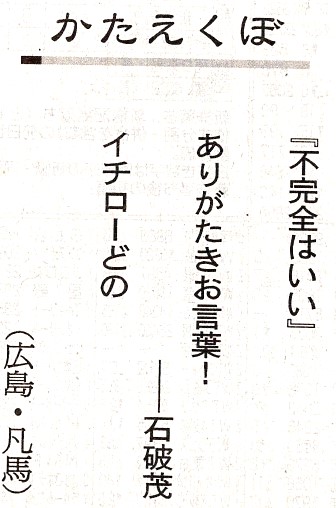 かたえくぼ
『不完全はいい』
ありがたきお言葉！
イチローどの
──石破茂
（広島・凡馬）